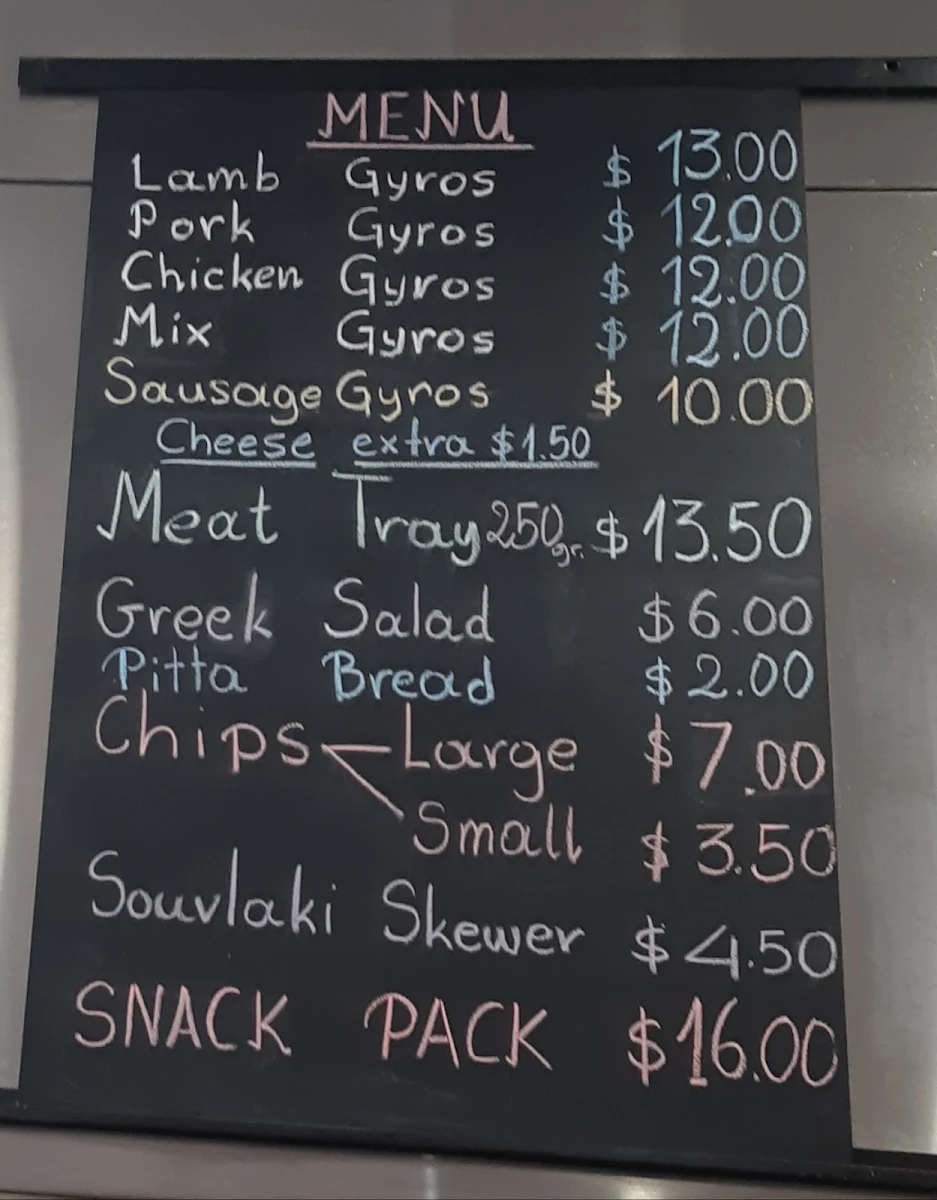 MENU
Lamb Gyros $ 13.00
Pork Gyros $ 12.00
Chicken Gyros $ 12.00
Mix Gyros $ 12.00
Sausage Gyros $ 10.00
Cheese extra $1.50
Meat Tray 250gr. $13.50
Greek Salad $6.00
Pitta Bread $2.00
Chips Large $7.00
Small $3.50
Souvlaki Skewer $4.50
SNACK PACK $16.00